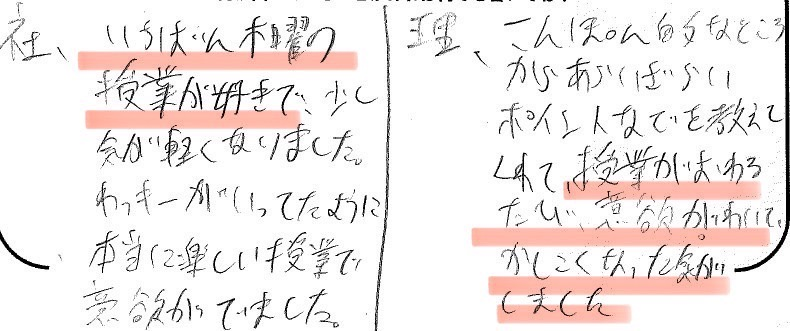 社、いちばん木曜の
授業が好きで、少し
気が軽くなりました。
わっキーがいってたように
本当に楽しい授業で
意欲がでました。
理、こんぽん的なところ
からあらいざらい
ポイントなどを教えて
くれて、授業がおわる
たび、意欲がわいて、
かしこくなった気が
しました